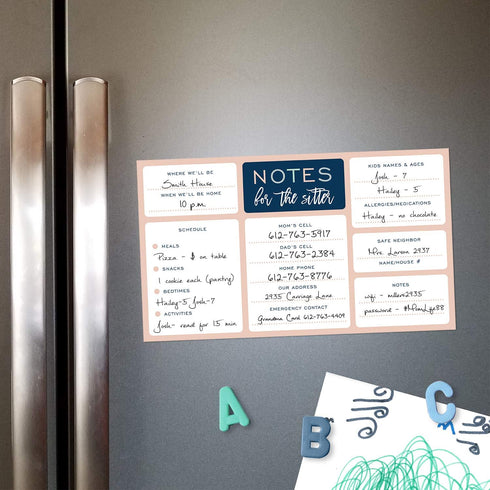 WHERE WE'LL BE
Smith House
WHEN WE'LL BE HOME
10 p.m.
NOTES
for the sitter
KIDS NAMES & AGES
Josh - 7
Hailey - 5
ALLERGIES/MEDICATIONS
Hailey - no chocolate
SCHEDULE
MEALS
Pizza - $ on table
SNACKS
1 cookie each (pantry)
BEDTIMES
Hailey-5 Josh-7
ACTIVITIES
Josh- read for 15 min
MOM'S CELL
612-763-5917
DAD'S CELL
612-763-2384
HOME PHONE
612-763-8776
OUR ADDRESS
2935 Carriage Lane
EMERGENCY CONTACT
Grandma Carol 612-763-4409
SAFE NEIGHBOR
Mrs. Larson 2937
NAME/HOUSE #
NOTES
wifi - millers2935
password - #MomLife88
A
B
C